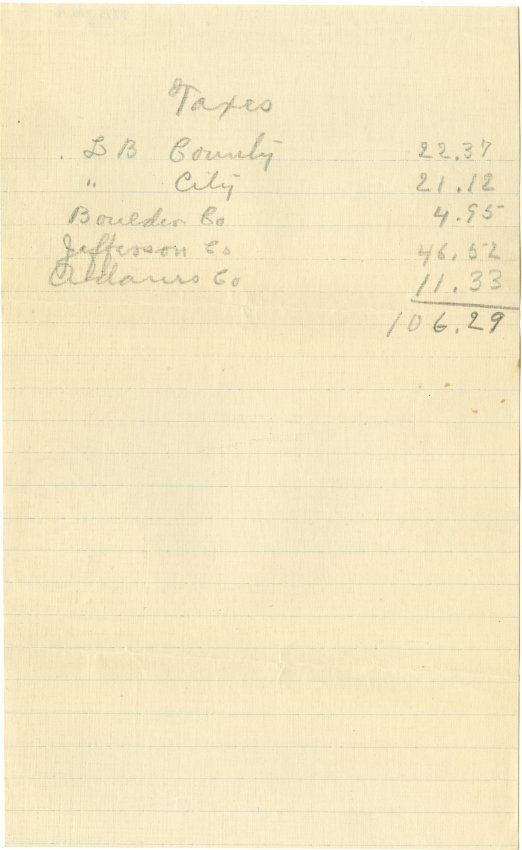 Taxes
L B County 22.37
" City 21.12
Boulder Co 4.95
Jefferson Co 46.52
Adams Co 11.33
106.29